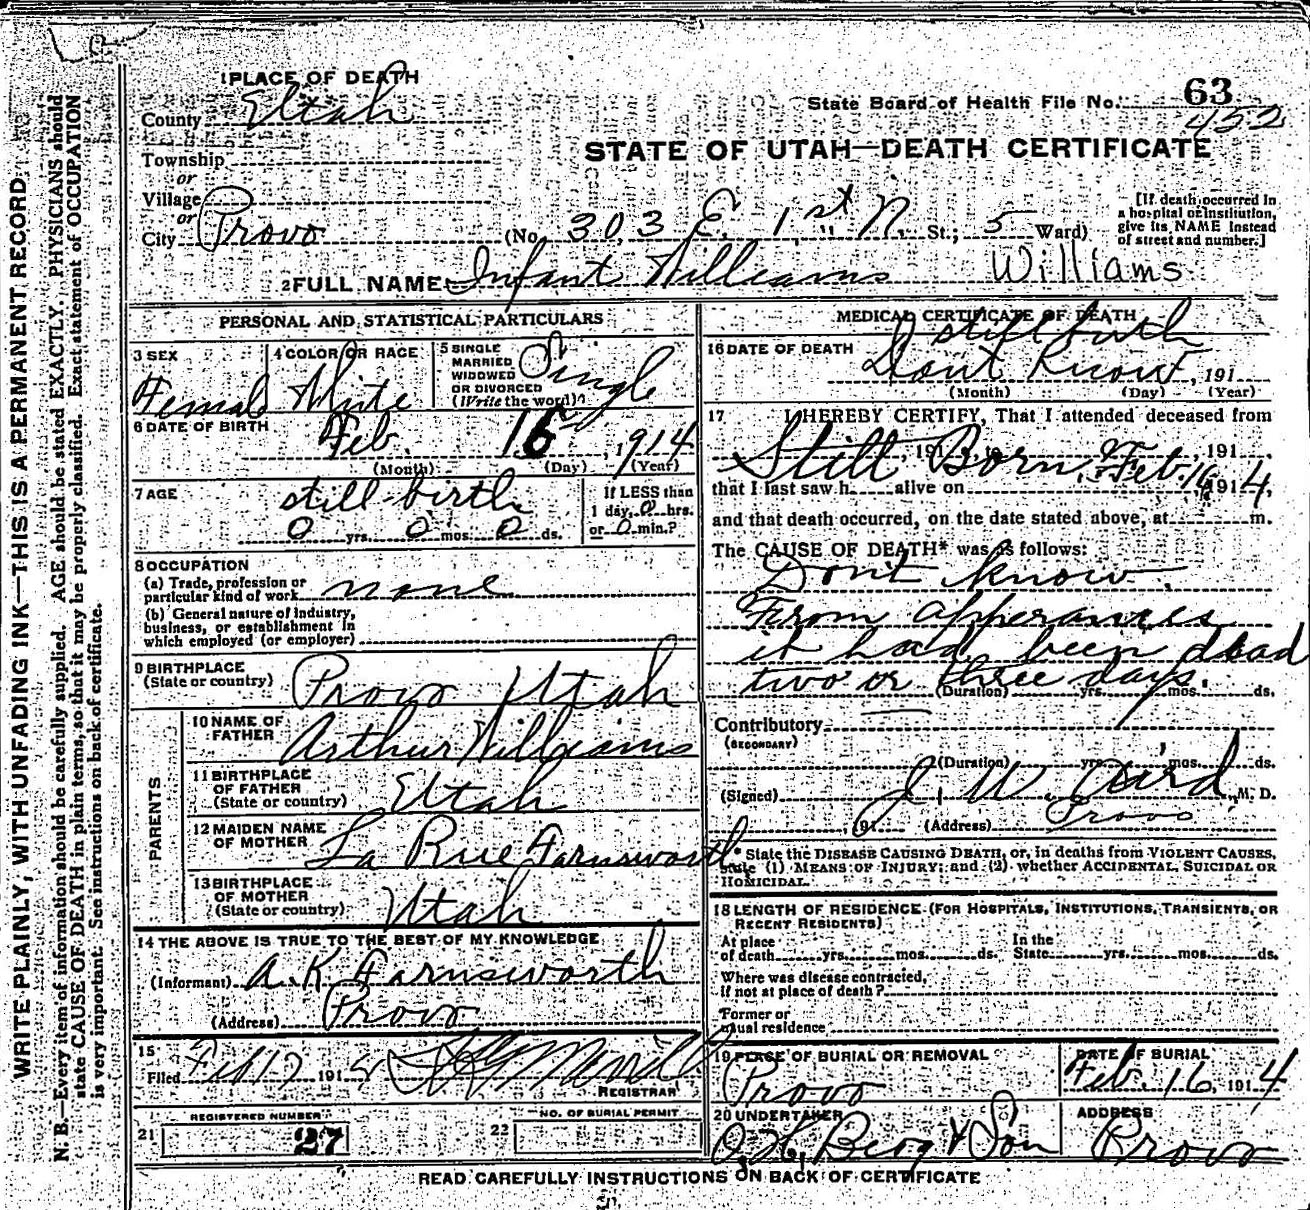 1 PLACE OF DEATH
County Utah
State Board of Health File No. 63
452
STATE OF UTAH—DEATH CERTIFICATE
Township
or
Village
or
City Provo (No. 303 E. 1st N. St.; 5 Ward)
[If death occurred in
a hospital or institution,
give its NAME instead
of street and number.]
2 FULL NAME Infant Williams Williams
PERSONAL AND STATISTICAL PARTICULARS
3 SEX Female
4 COLOR OR RACE White
5 SINGLE
MARRIED
WIDOWED
OR DIVORCED
(Write the word)
Single
6 DATE OF BIRTH
Feb. 16, 1914
(Month) (Day) (Year)
7 AGE
still-birth
0 yrs. 0 mos. 0 ds.
If LESS than
1 day, 0 hrs.
or 0 min.?
8 OCCUPATION
(a) Trade, profession or
particular kind of work none
(b) General nature of industry,
business, or establishment in
which employed (or employer)
9 BIRTHPLACE
(State or country) Provo Utah
PARENTS
10 NAME OF
FATHER Arthur Williams
11 BIRTHPLACE
OF FATHER
(State or country) Utah
12 MAIDEN NAME
OF MOTHER La Rue Farnsworth
13 BIRTHPLACE
OF MOTHER
(State or country) Utah
14 THE ABOVE IS TRUE TO THE BEST OF MY KNOWLEDGE
(Informant) A. K Farnsworth
(Address) Provo
15
Filed Feb 17 191
REGISTRAR
REGISTERED NUMBER
21 27
NO. OF BURIAL PERMIT
22
MEDICAL CERTIFICATE OF DEATH
still birth
16 DATE OF DEATH
Dont Know, 191
(Month) (Day) (Year)
17 I HEREBY CERTIFY, That I attended deceased from
Still Born, Feb. 16 1914,
that I last saw h alive on
and that death occurred, on the date stated above, at m.
The CAUSE OF DEATH* was as follows:
Don't know.
From apperances
it had been dead
two or three days.
(Duration) yrs. mos. ds.
Contributory
(SECONDARY)
(Duration) yrs. mos. ds.
(Signed) J. W. Aird M. D.
191 (Address) Provo
* State the DISEASE CAUSING DEATH, or, in deaths from VIOLENT CAUSES,
state (1) MEANS OF INJURY; and (2) whether ACCIDENTAL, SUICIDAL OR
HOMICIDAL.
18 LENGTH OF RESIDENCE (FOR HOSPITALS, INSTITUTIONS, TRANSIENTS, OR
RECENT RESIDENTS)
At place
of death yrs. mos. ds.
In the
State yrs. mos. ds.
Where was disease contracted,
if not at place of death?
Former or
usual residence
19 PLACE OF BURIAL OR REMOVAL
Provo
DATE OF BURIAL
Feb. 16, 1914
20 UNDERTAKER
O. H. Berg & Son
ADDRESS
Provo
READ CAREFULLY INSTRUCTIONS ON BACK OF CERTIFICATE
WRITE PLAINLY, WITH UNFADING INK—THIS IS A PERMANENT RECORD
N. B.—Every item of information should be carefully supplied. AGE should be stated EXACTLY. PHYSICIANS should
state CAUSE OF DEATH in plain terms, so that it may be properly classified. Exact statement of OCCUPATION
is very important. See instructions on back of certificate.